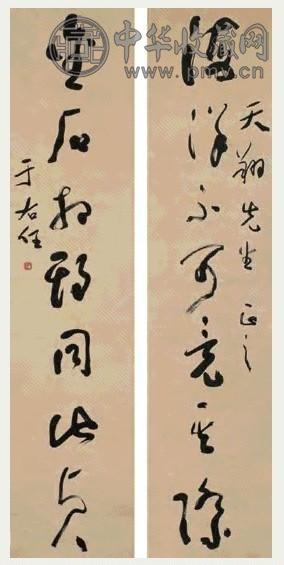 中华收藏网
www.pmv.cn
天翔先生正之
洋不可竟其際
金石相期同此貞
于右任